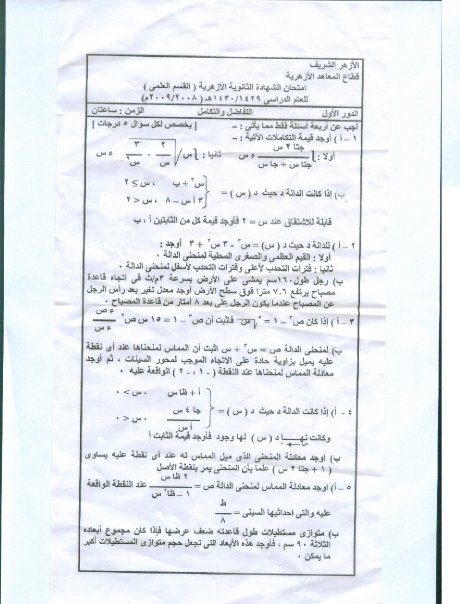 الأزهر الشريف
قطاع المعاهد الأزهرية
امتحان الشهادة الثانوية الأزهرية ( القسم العلمى )
للعام الدراسى ١٤٣٠/١٤٢٩هـ ( ٢٠٠٩/٢٠٠٨م )
الدور الأول التفاضل والتكامل الزمن: ساعتان
أجب عن أربعة أسئلة فقط مما يأتى : - [ يخصص لكل سؤال ٥ درجات ]
١ – أ ) أوجد قيمة التكاملات الآتية : -
أولا : جتا ٢ س / جتا س + جا س ء س ثانيا :
ب) إذا كانت الدالة د حيث د ( س ) =
س٢ + ب ، س ≤ ٢
٣ أ س – ٨ ، س > ٢
قابلة للاشتقاق عند س = ٢ فأوجد قيمة كل من الثابتين أ ، ب
٢ – أ ) للدالة د حيث د ( س) = س٣ – ٣ س٢ + ٣ أوجد :
أولا : القيم العظمى والصغرى المحلية لمنحنى الدالة
ثانيا : فترات التحدب لأعلى وفترات التحدب لأسفل لمنحنى الدالة
ب) رجل طوله ١٦٠سم يمشى على الأرض بسرعة ٣م/ث فى اتجاه قاعدة
مصباح يرتفع ٧.٦ مترا فوق سطح الأرض أوجد معدل تغير بعد رأس الرجل
عن المصباح عندما يكون الرجل على بعد ٨ أمتار من قاعدة المصباح
٣ – أ) إذا كان فاثبت أن
ب) لمنحنى الدالة ص = س٣ + س اثبت أن المماس لمنحناها عند أى نقطة
عليه يميل بزاوية حادة على الاتجاه الموجب لمحور السينات ، ثم أوجد
معادلة المماس لمنحناها عند النقطة ( -١ ، -٢ ) الواقعة عليه
٤ - أ) إذا كانت الدالة د حيث د ( س ) =
أ + ظا س ، س > ٠
جا ٤ س / أ س ، س < ٠
وكانت نهــا د ( س ) لها وجود فأوجد قيمة الثابت أ
ب) أوجد معادلة المنحنى الذى ميل المماس له عند أى نقطة عليه يساوى
( ١ + جتا ٢ س ) علما بأن المنحنى يمر بنقطة الأصل
٥ – أ) أوجد معادلة المماس لمنحنى الدالة ص = ٢ ظا س / ١ – ظا٢ س عند النقطة الواقعة
عليه والتى احداثيها السينى = ط / ٨
ب) متوازى مستطيلات طول قاعدته ضعف عرضها فإذا كان مجموع أبعاده
الثلاثة ٩٠ سم ، فأوجد هذه الأبعاد التى تجعل حجم متوازى المستطيلات أكبر
ما يمكن